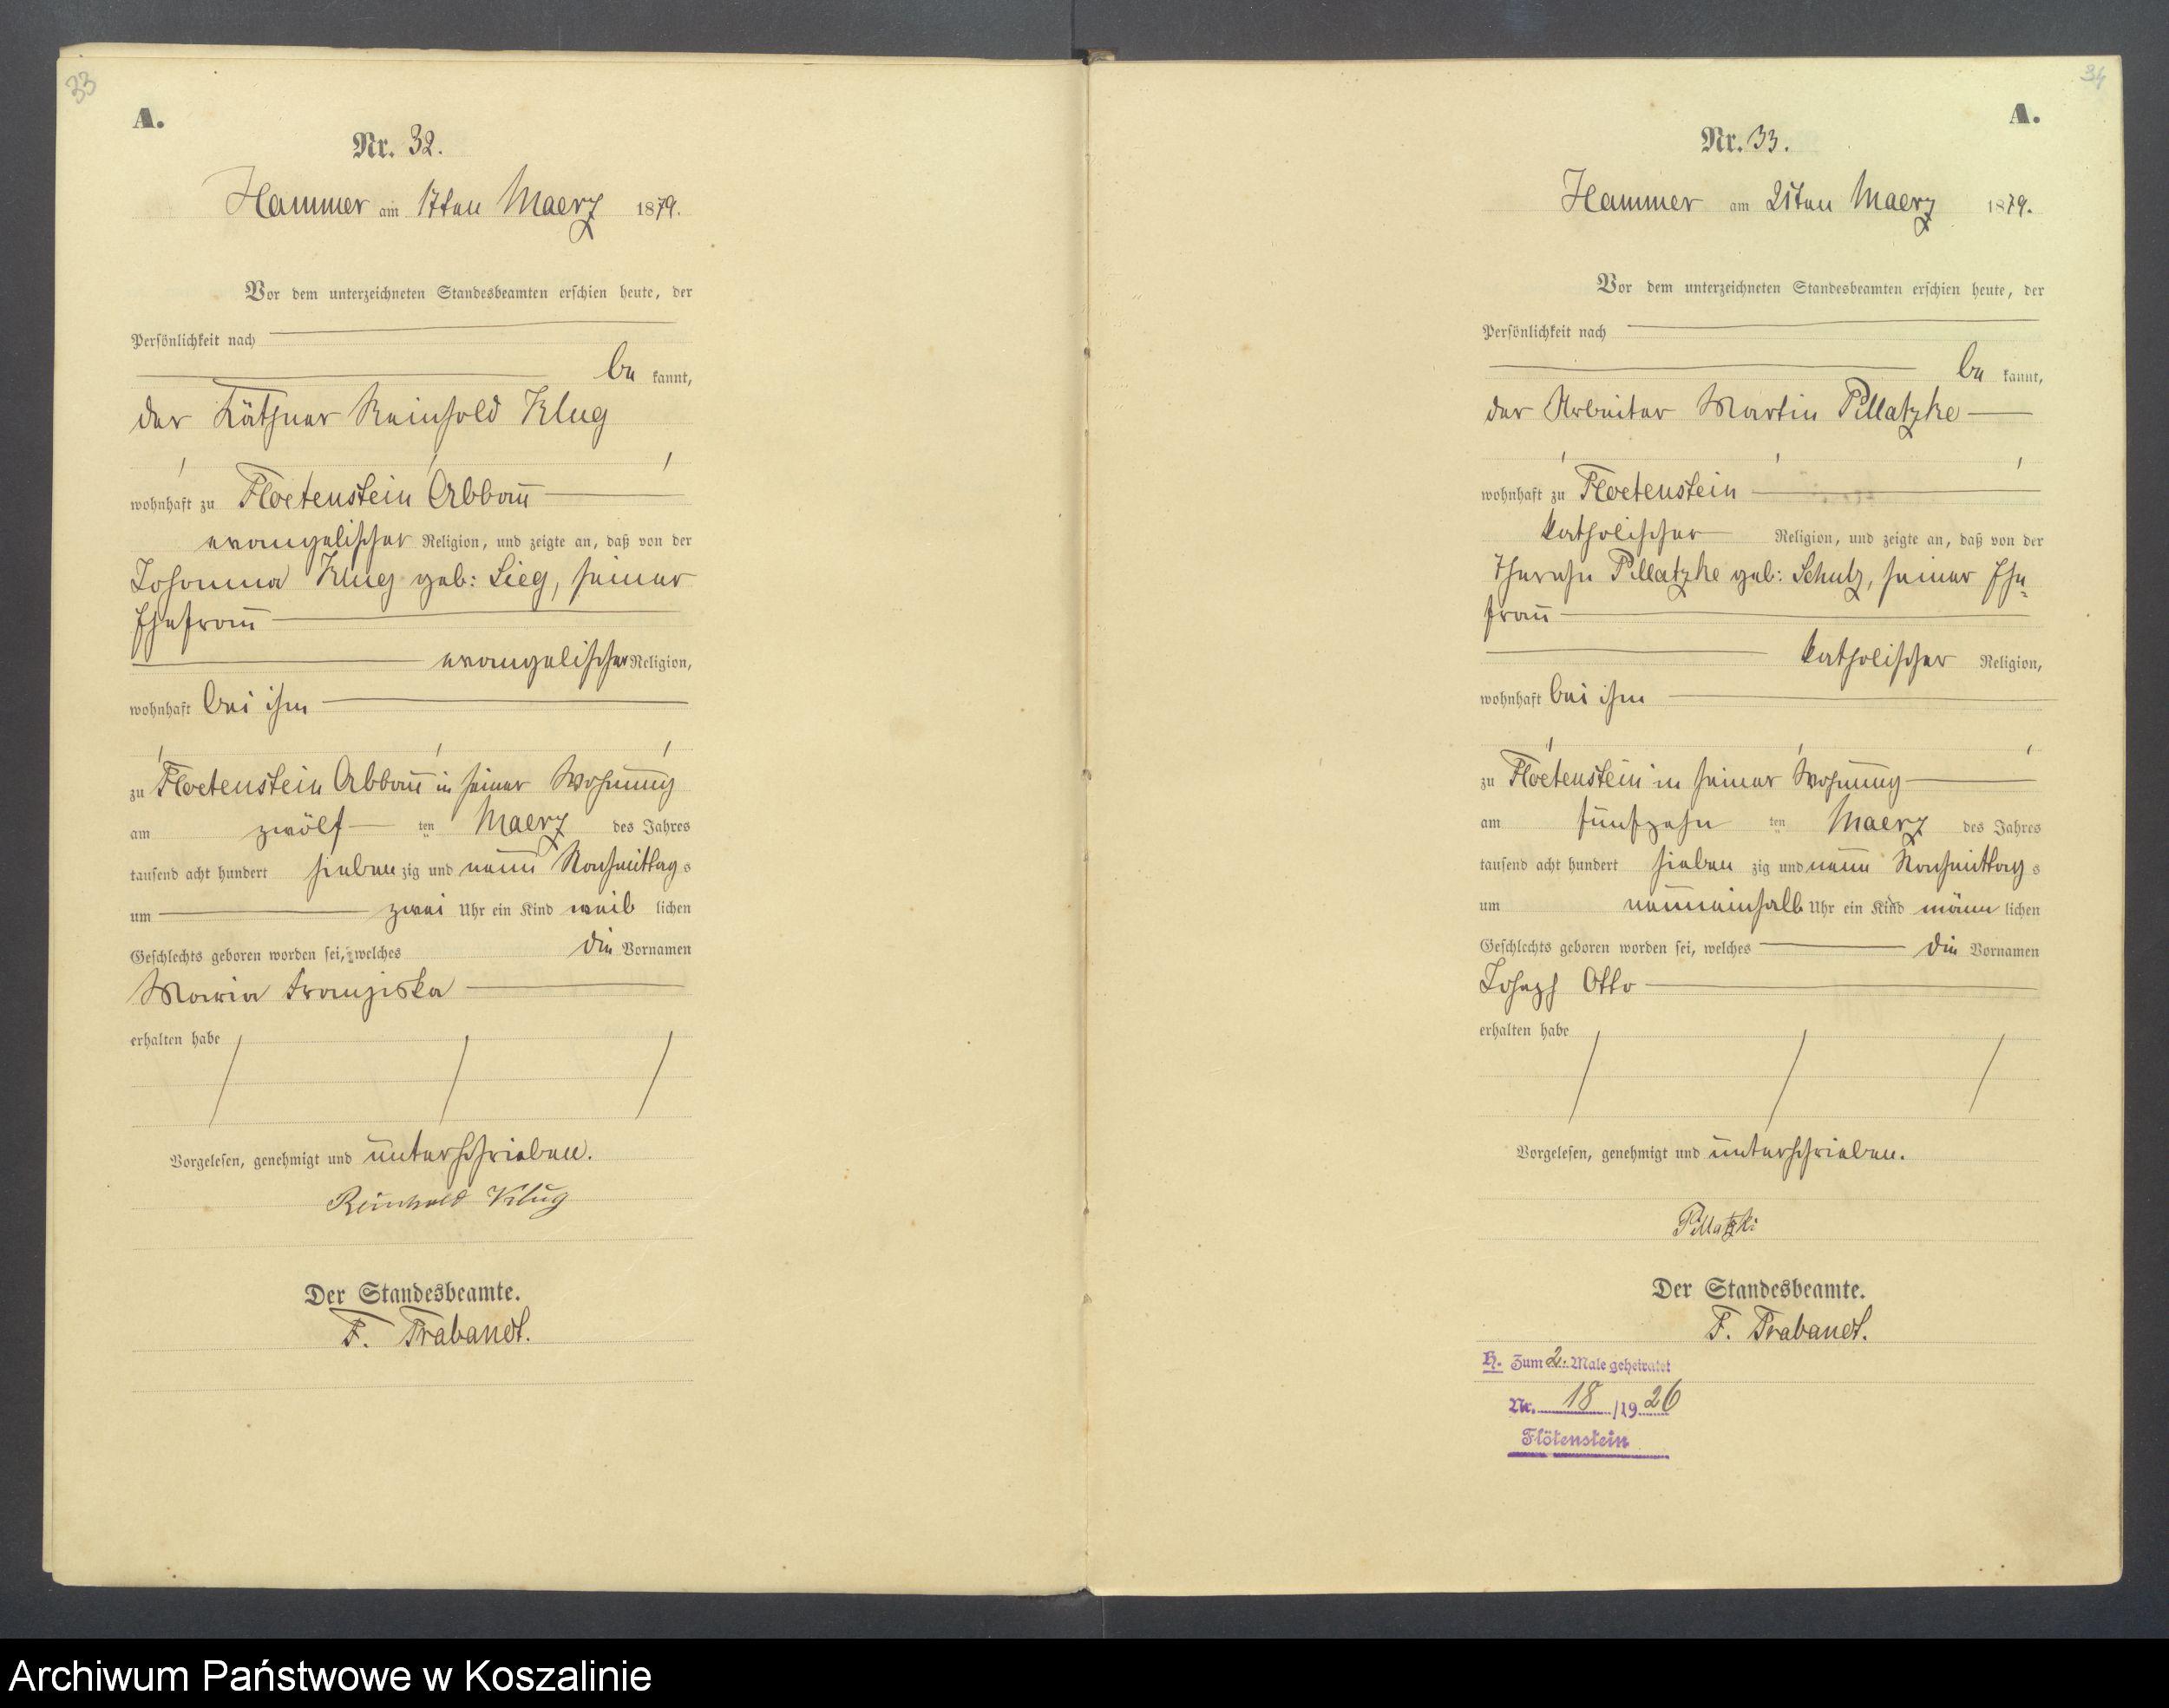 33
A.
Nr. 32.
Hammer am 17ten Maerz 1879.
Vor dem unterzeichneten Standesbeamten erschien heute, der
Persönlichkeit nach
be kannt,
der Käthner Reinhold Klug
wohnhaft zu Floetenstein Abbau
evangelischer Religion, und zeigte an, daß von der
Johanna Klug geb: Sieg, seiner
Ehefrau
evangelischer Religion,
wohnhaft bei ihm
zu Floetenstein Abbau in seiner Wohnung
am zwölf ten Maerz des Jahres
tausend acht hundert sieben zig und neun Nachmittag s
um zwei Uhr ein Kind weib lichen
Geschlechts geboren worden sei, welches die Vornamen
Maria Franziska
erhalten habe
Vorgelesen, genehmigt und unterschrieben.
Reinhold Klug
Der Standesbeamte.
F. Trabandt.
34
A.
Nr. 33.
Hammer am 21ten Maerz 1879.
Vor dem unterzeichneten Standesbeamten erschien heute, der
Persönlichkeit nach
be kannt,
der Arbeiter Martin Pillatzke
wohnhaft zu Floetenstein
katholischer Religion, und zeigte an, daß von der
Therese Pillatzke geb: Schulz, seiner Ehe-
frau
katholischer Religion,
wohnhaft bei ihm
zu Floetenstein in seiner Wohnung
am fünfzehn ten Maerz des Jahres
tausend acht hundert sieben zig und neun Nachmittag s
um neuneinhalb Uhr ein Kind männ lichen
Geschlechts geboren worden sei, welches die Vornamen
Joseph Otto
erhalten habe
Vorgelesen, genehmigt und unterschrieben.
Pillatzki
Der Standesbeamte.
F. Trabandt.
H. Zum 2. Male geheiratet
Nr. 18 /19 26
Flötenstein
Archiwum Państwowe w Koszalinie